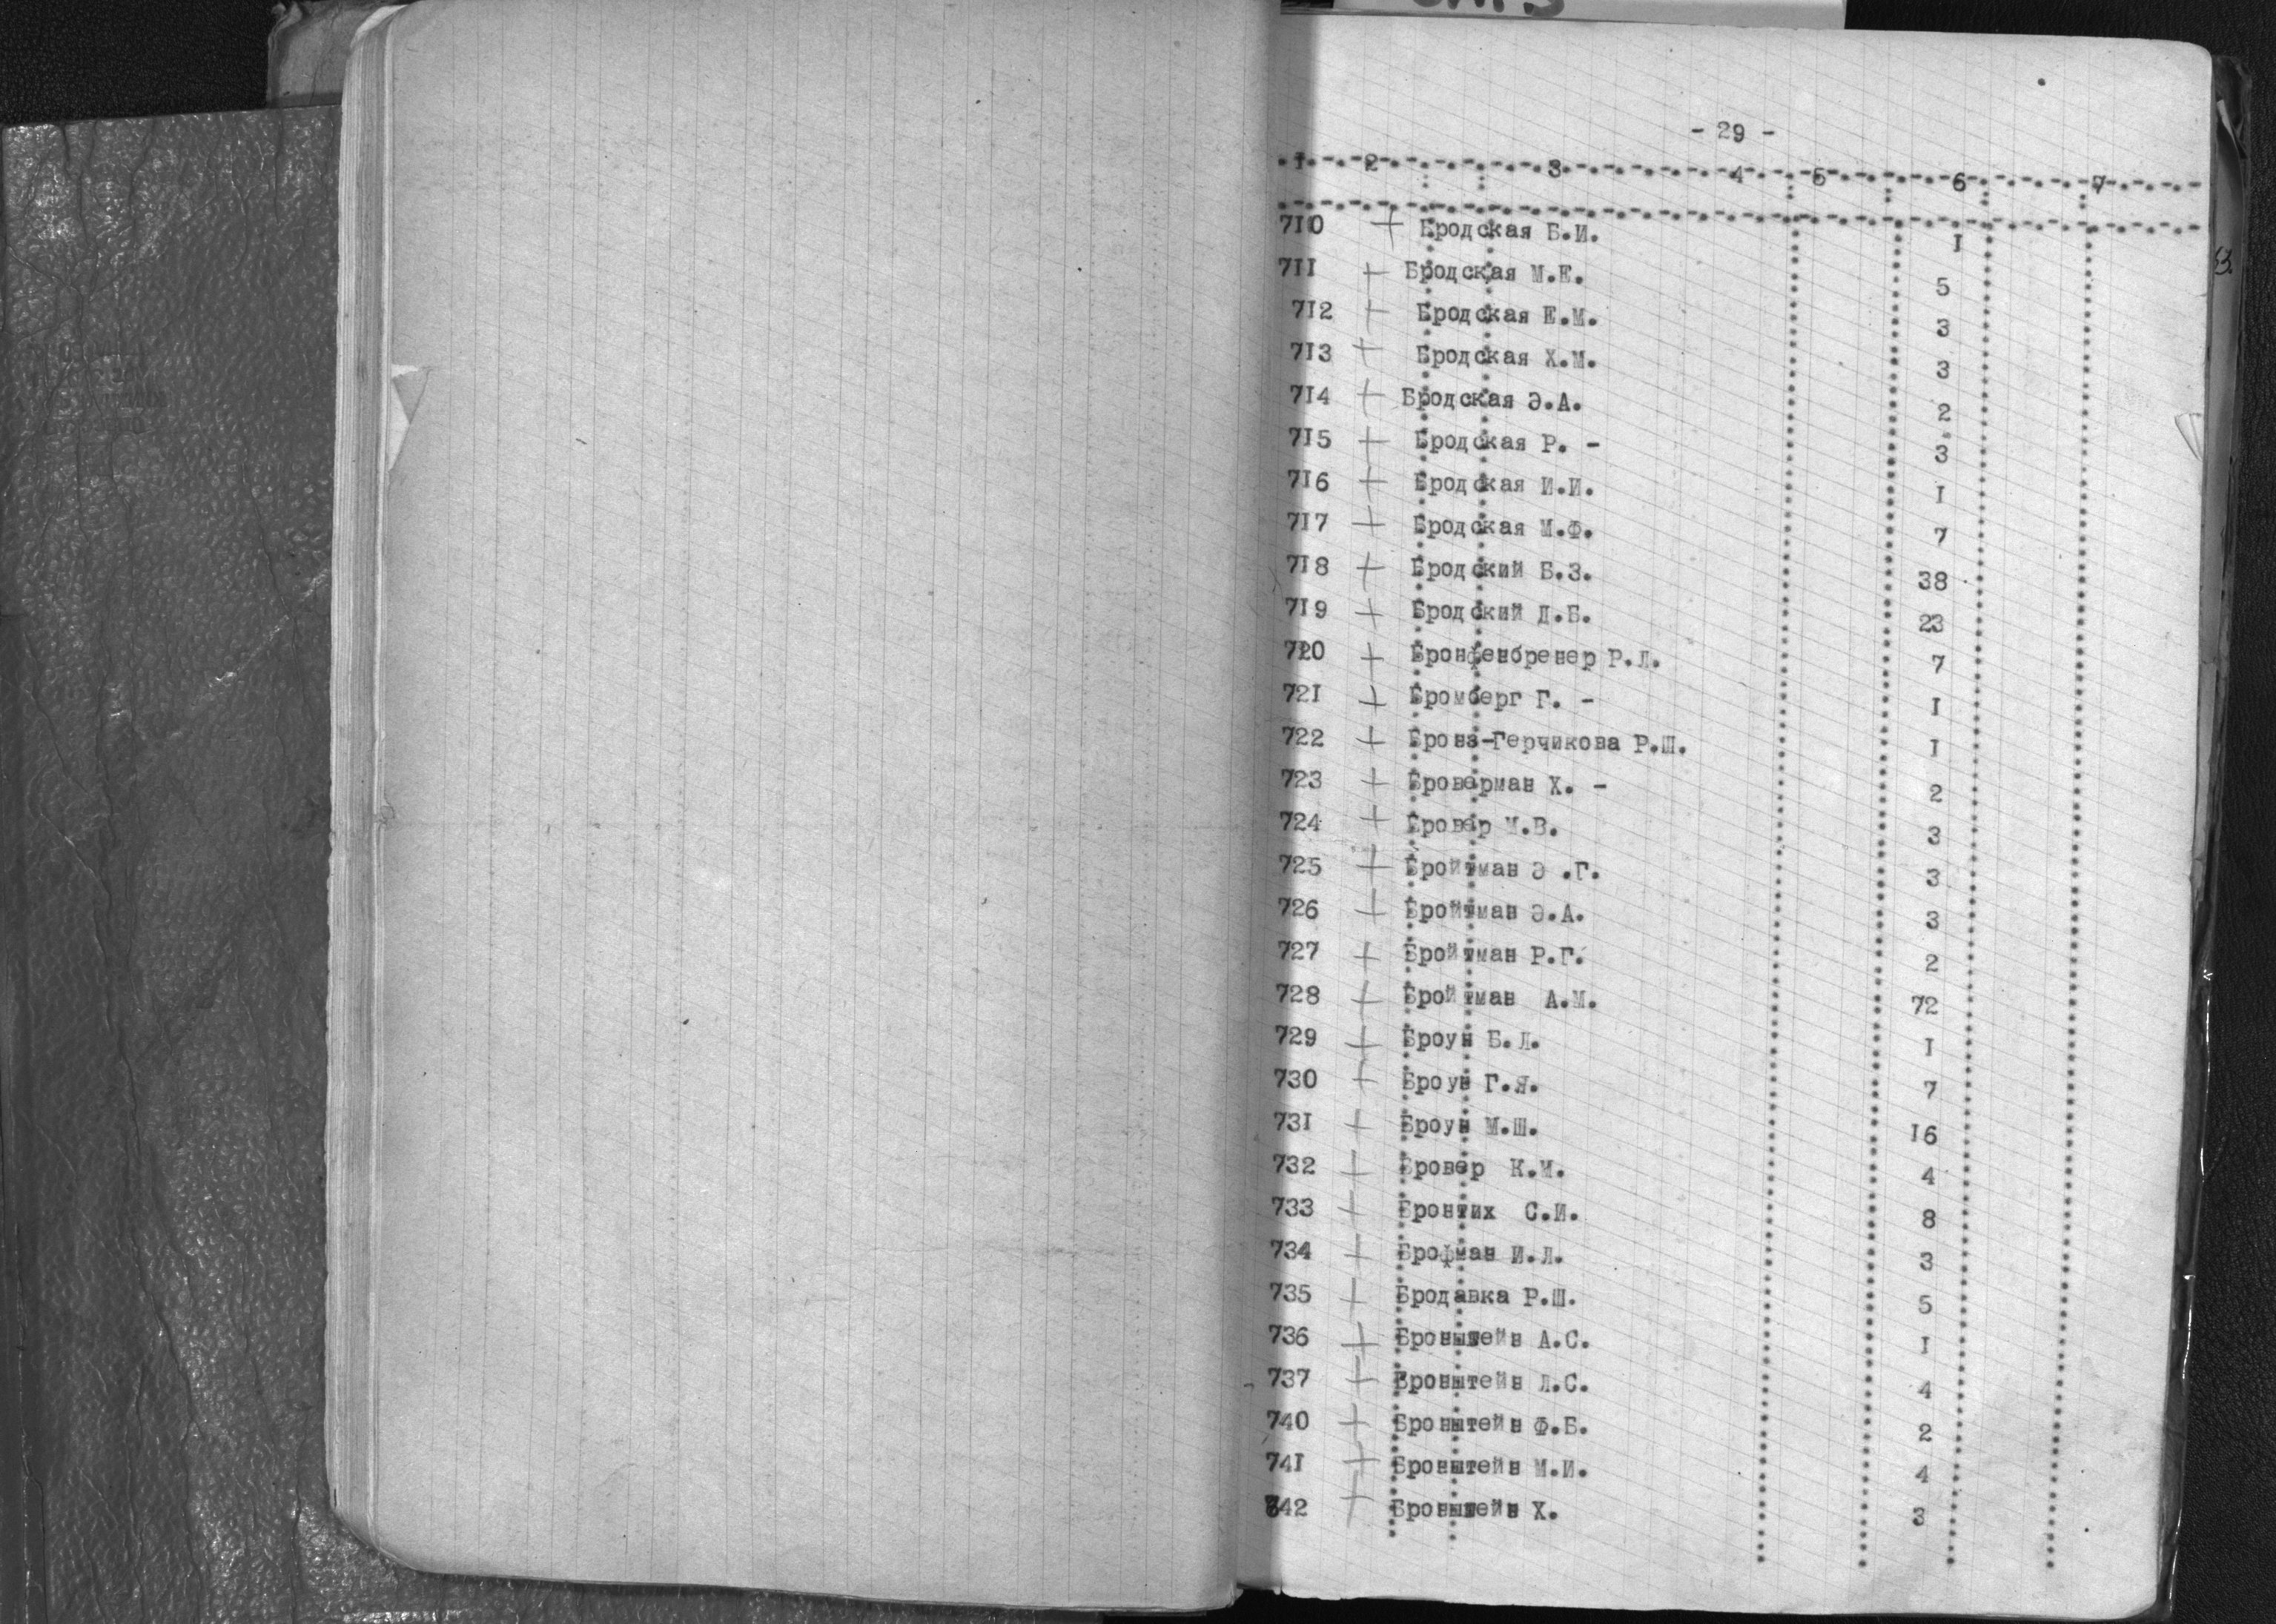 - 29 -
1 2 3 4 5 6 7
710 + Бродская Б.И. I
711 + Бродская М.Е. 5
712 + Бродская Е.М. 3
713 + Бродская Х.М. 3
714 + Бродская Э.А. 2
715 + Бродская Р. - 3
716 + Бродская И.И. I
717 + Бродская М.Ф. 7
718 + Бродский Б.З. 38
719 + Бродский Д.Б. 23
720 + Бронфенбренер Р.Л. 7
721 + Бромберг Г. - I
722 + Бронз-Герчикова Р.Ш. I
723 + Броверман Х. - 2
724 + Бровер М.В. 3
725 + Бройтман Э .Г. 3
726 + Бройтман Э.А. 3
727 + Бройтман Р.Г. 2
728 + Бройтман А.М. 72
729 + Броун Б.Л. I
730 + Броун Г.Я. 7
731 + Броун М.Ш. I6
732 + Бровер К.М. 4
733 + Бронтих С.И. 8
734 + Брофман И.Л. 3
735 + Бродавка Р.Ш. 5
736 + Бронштейн А.С. I
737 + Бронштейн Л.С. 4
740 + Бронштейн Ф.Б. 2
741 + Бронштейн М.И. 4
742 + Бронштейн Х. 3